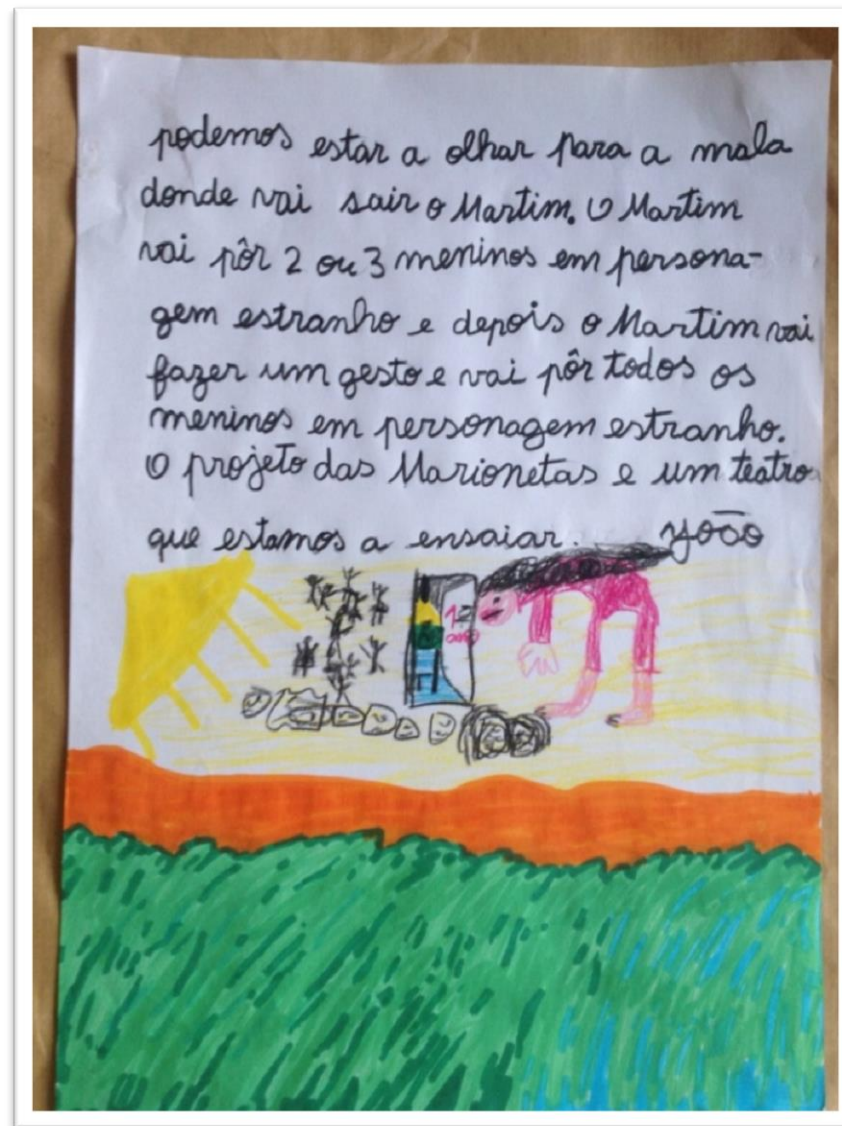 podemos estar a olhar para a mala
donde vai sair o Martim. O Martim
vai pôr 2 ou 3 meninos em persona-
gem estranho e depois o Martim vai
fazer um gesto e vai pôr todos os
meninos em personagem estranho.
O projeto das Marionetas e um teatro
que estamos a ensaiar. João
1º
ano